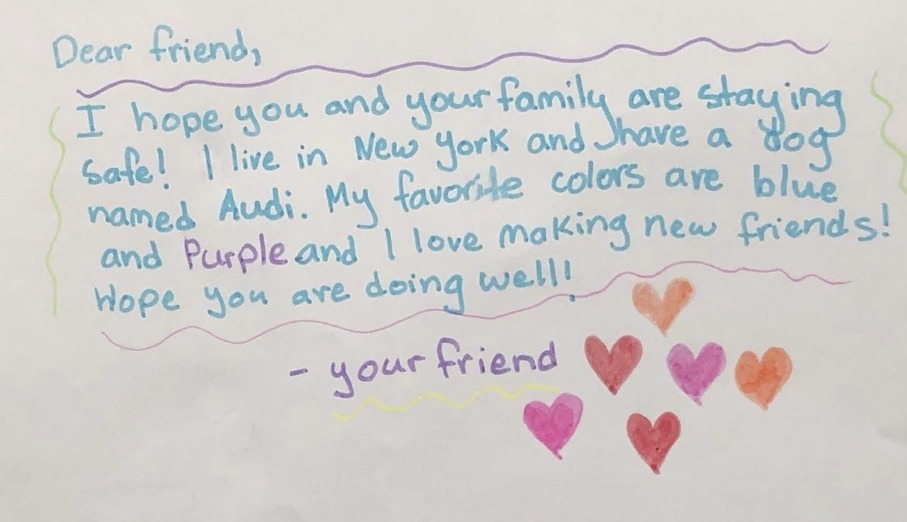 Dear friend,
I hope you and your family are staying
safe! I live in New York and have a dog
named Audi. My favorite colors are blue
and Purple and I love making new friends!
Hope you are doing well!
- your friend